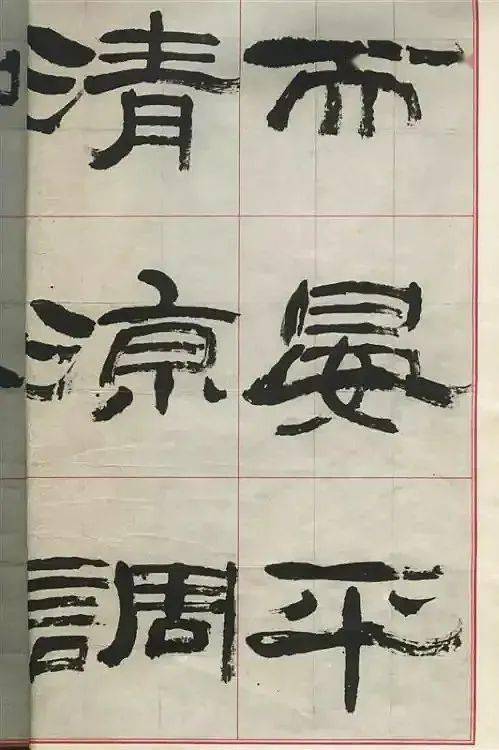 而晏平
清涼調